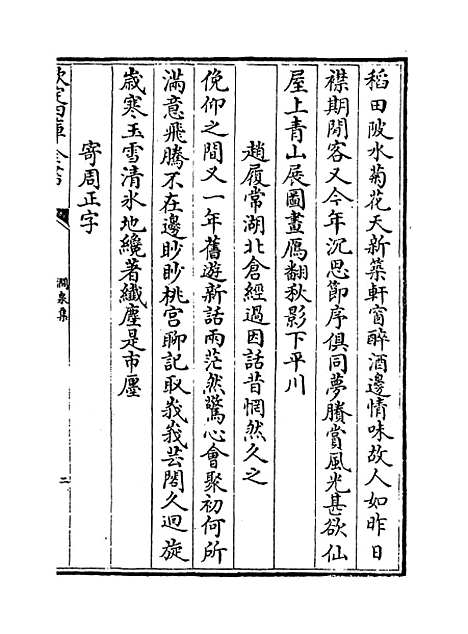 稻田陂水菊花天新築軒窗醉酒邊情味故人如昨日
襟期閒客又今年沉思節序俱同夢賸賞風光甚欲仙
屋上青山展圖畫鴈翻秋影下平川
趙履常湖北倉經過因話昔惘然久之
俛仰之間又一年舊遊新話兩茫然驚心會聚初何所
滿意飛騰不在邊眇眇桃宫聊記取峩峩芸閣久迴旋
歲寒玉雪清氷地纔著纎塵是市廛
寄周正字
欽定四庫全書
澗泉集
二